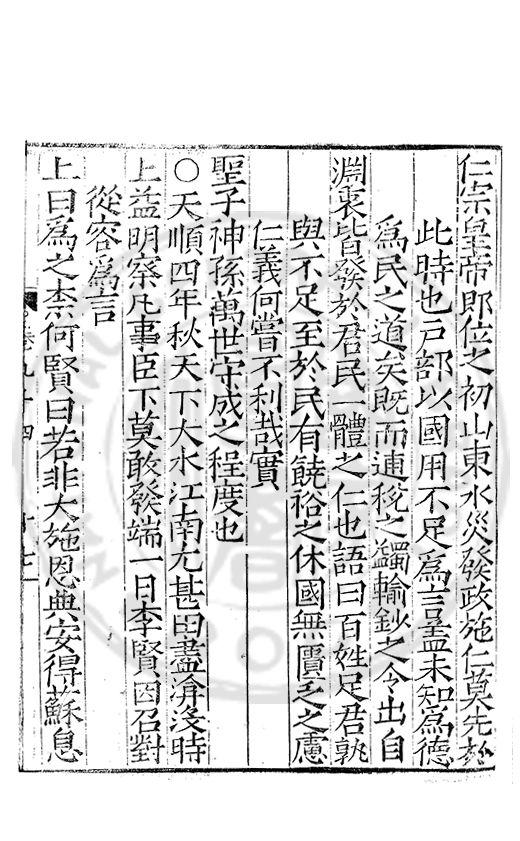 仁宗皇帝即位之初山東水災發政施仁莫先於
此時也戶部以國用不足為言蓋未知為德
為民之道矣既而逋稅之蠲輸鈔之令出自
淵衷皆發於君民一體之仁也語曰百姓足君孰
與不足至於民有饒裕之休國無匱乏之慮
仁義何嘗不利哉實
聖子神孫萬世守成之程度也
○天順四年秋天下大水江南尤甚田盡渰沒時
上益明察凡事臣下莫敢發端一日李賢因召對
從容為言
上曰為之柰何賢曰若非大施恩典安得蘇息
卷九十四 十七